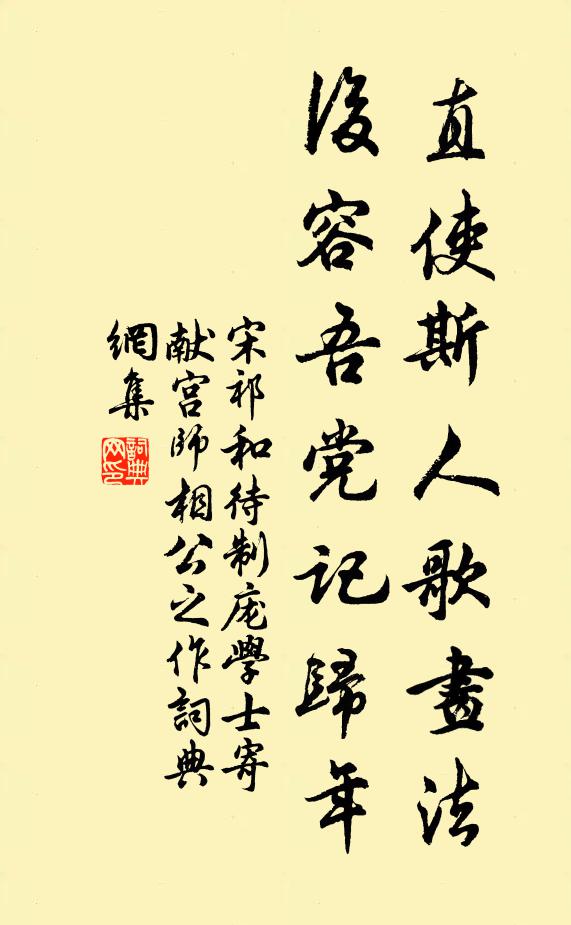 直使斯人歌畫法
後容吾党記歸年
宋祁和待制庞學士寄
献宫師相公之作詞典
網集
詞典
网印